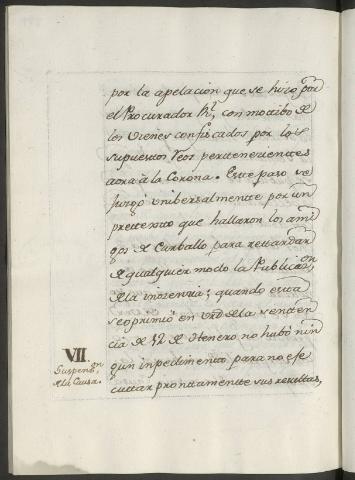 por la apelación que se hizo por
el Procurador Rl, con motibo de
los vienes confiscados por los
supuestos Reos pertenecientes
aora à la Corona. Este paso se
Juzgó unibersalmente por un
pretexto que hallaron los ami
gos de Carballo para retardar
de qualquier modo la Publicaon,
de la inocencia; quando esta
se oprimió en vrd de la senten
cia de 12 de Henero no hubo nin
gun inpedimento para no eje
cuttar prontamente sus resultas,
VII.
Suspenson
de la Causa.